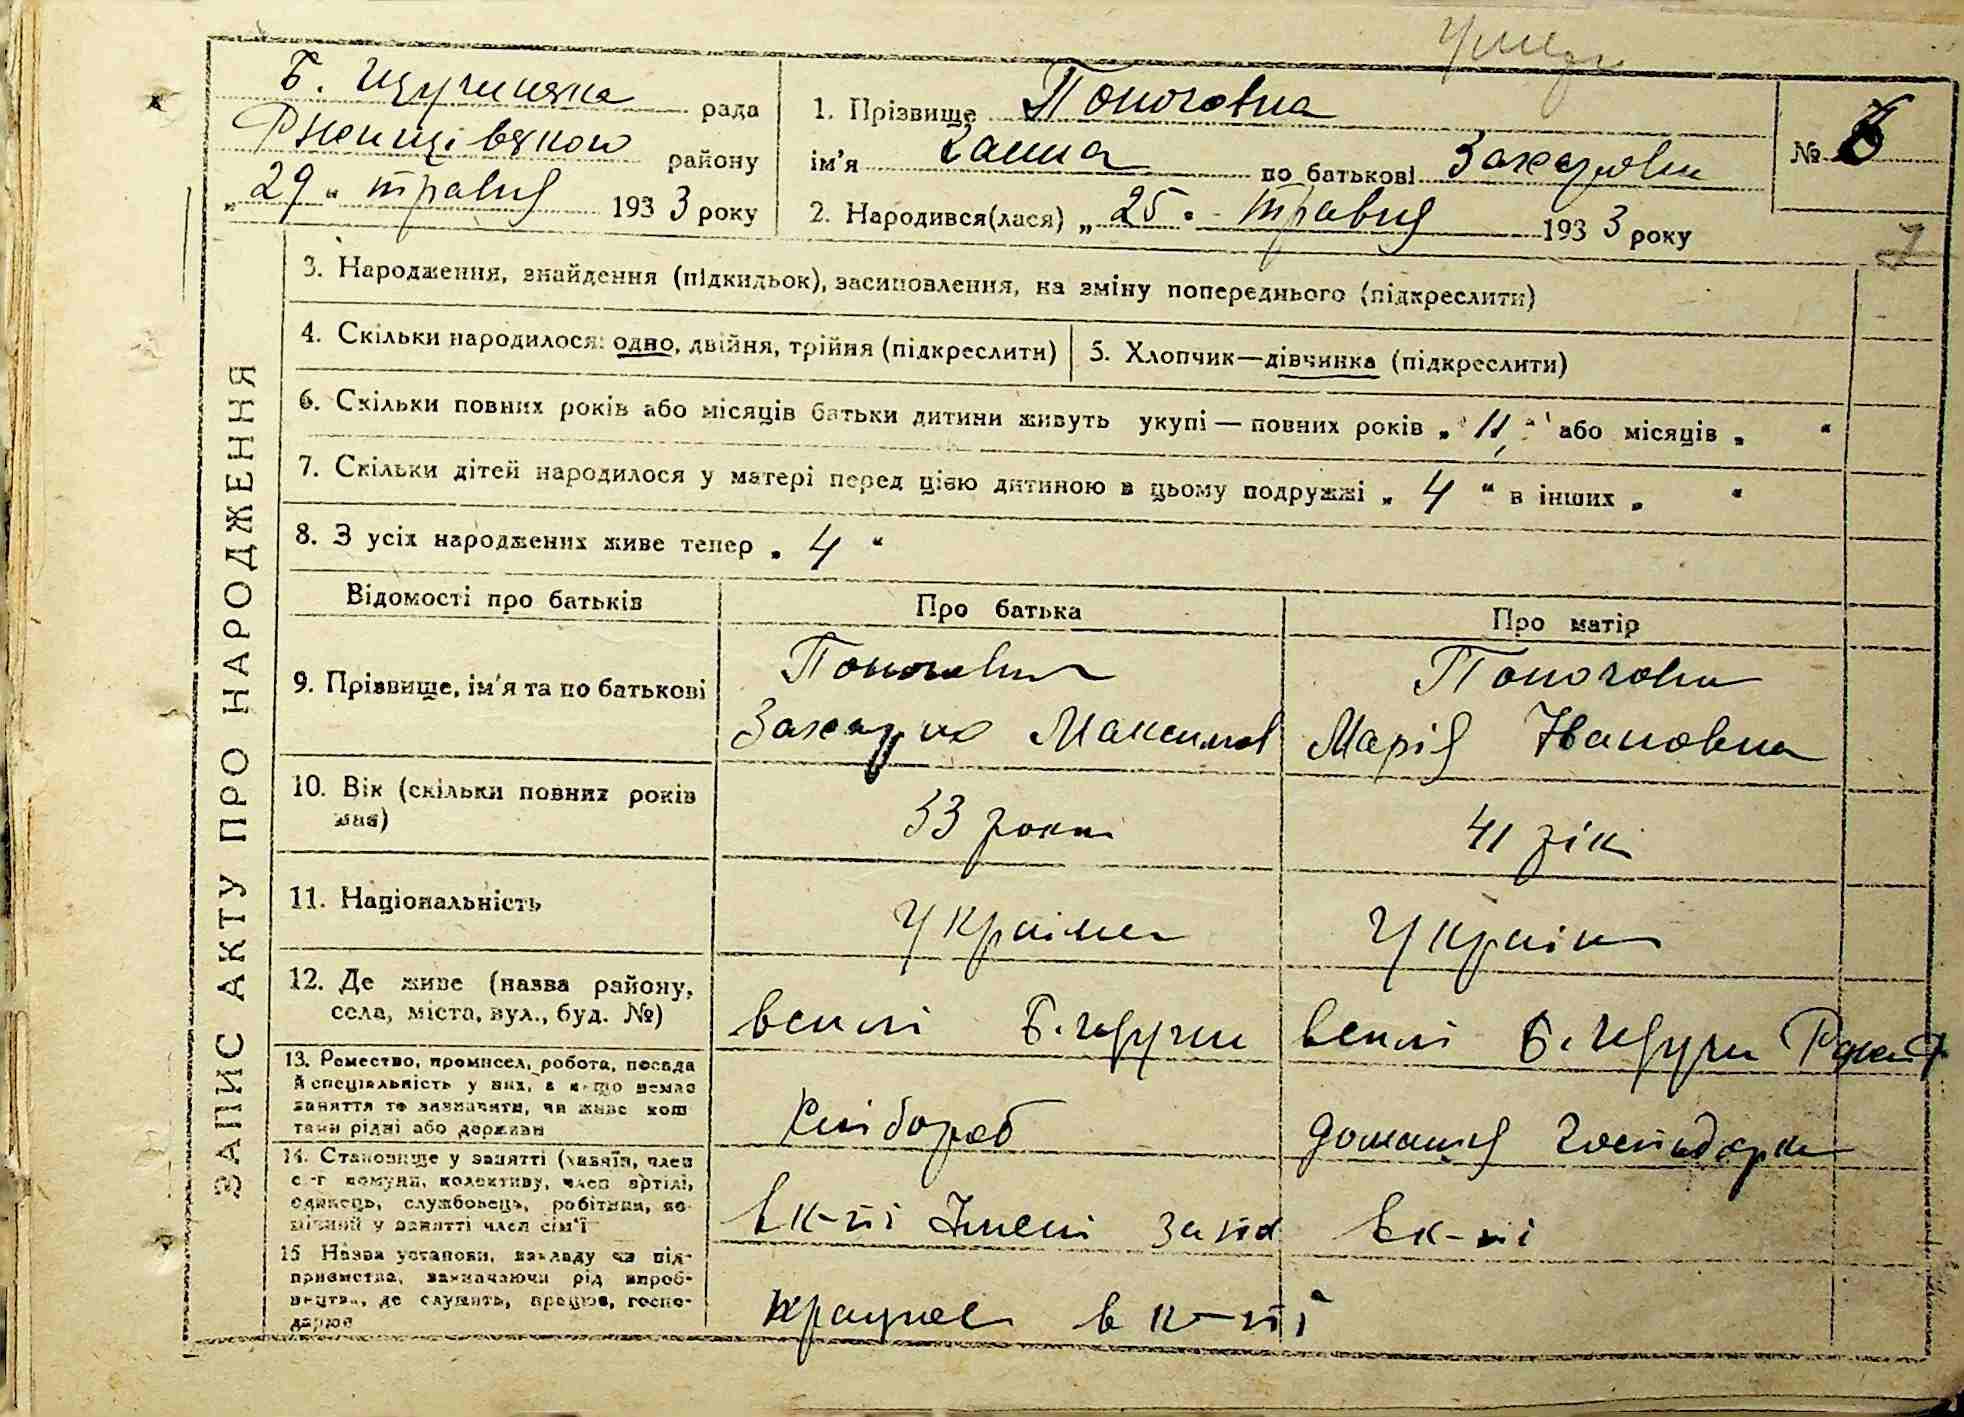 Б. Щучинська рада
Ржищівської району
„29“ травня 1933 року
1. Прізвище Поночовна
ім'я Ганна по батькові Захаровн
2. Народився(лася) „25“ травня 1933 року
№ 6
7
ЗАПИС АКТУ ПРО НАРОДЖЕННЯ
3. Народження, знайдення (підкидьок), засиновлення, на зміну попереднього (підкреслити)
4. Скільки народилося: одно, двійня, трійня (підкреслити)
5. Хлопчик—дівчинка (підкреслити)
6. Скільки повних років або місяців батьки дитини живуть укупі — повних років „11“ або місяців „ “
7. Скільки дітей народилося у матері перед цією дитиною в цьому подружжі „4“ в інших „ “
8. З усіх народжених живе тепер „4“
Відомості про батьків Про батька Про матір
9. Прізвище, ім'я та по батькові
Поночовн
Захарко Максимов
Поночовн
Марія Івановна
10. Вік (скільки повних років має)
33 роки
41 рік
11. Національність
Україне
Україн
12. Де живе (назва району,
села, міста, вул., буд. №)
в селі Б. Щучин
в селі Б. Щучи
13. Ремество, промисел, робота, посада
й спеціяльність у них, а якщо немає
заняття то зазначити, чи живе кош
тами рідні або держави
Хлібороб
домашня господарка
14. Становище у занятті (хазяїн, член
с-г комуни, колективу, член артілі,
одинець, службовець, робітник, по-
мічний у занятті член сім'ї
в к-пі Імені
в к-пі
15 Назва установи, закладу чи під-
приємства, зазначаючи рід вироб-
ництва, де служить, працює, госпо-
дарює
працює в к-пі